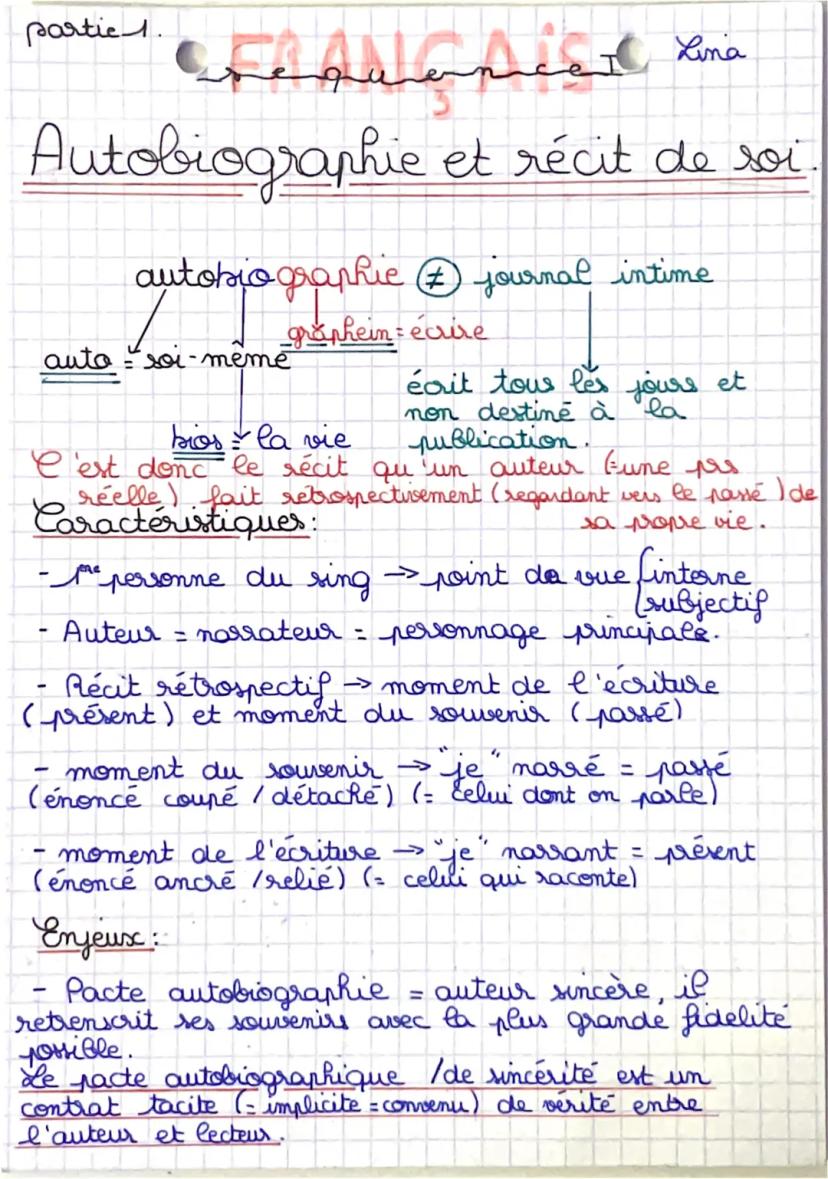 partie 1.
FRANÇAiS
Lina
sequence I
Autobiographie et récit de soi.
autobiographie ≠ journal intime
graphein = écrire
auto = soi-même
écrit tous les jours et
non destiné à la
bios = la vie
publication.
C'est donc le récit qu'un auteur (=une prs
réelle) fait rétrospectivement (regardant vers le passé) de
sa propre vie.
Caractéristiques:
- 1re personne du sing → point de vue { interne
subjectif
- Auteur = narrateur = personnage principale.
- Récit rétrospectif → moment de l'écriture
(présent) et moment du souvenir (passé)
- moment du souvenir → "je" narré = passé
(énoncé coupé / détaché) (= celui dont on parle)
- moment de l'écriture → "je" narrant = présent
(énoncé ancré / relié) (= celui qui raconte)
Enjeux:
- Pacte autobiographie = auteur sincère, il
retrenscrit ses souvenirs avec la plus grande fidélité
possible.
Le pacte autobiographique / de sincérité est un
contrat tacite (= implicite = convenu) de vérité entre
l'auteur et lecteur.